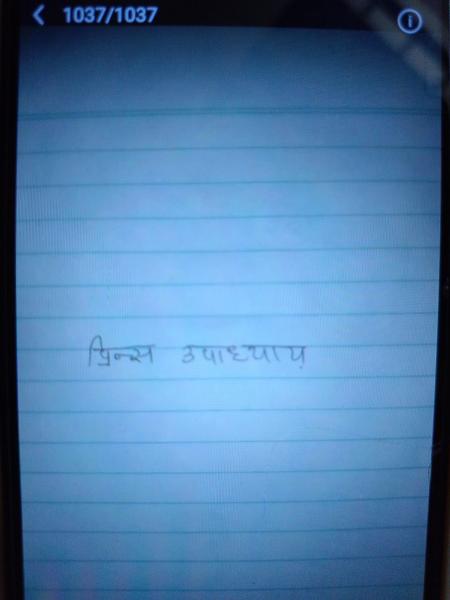 1037/1037
प्रिन्स उपाध्याय